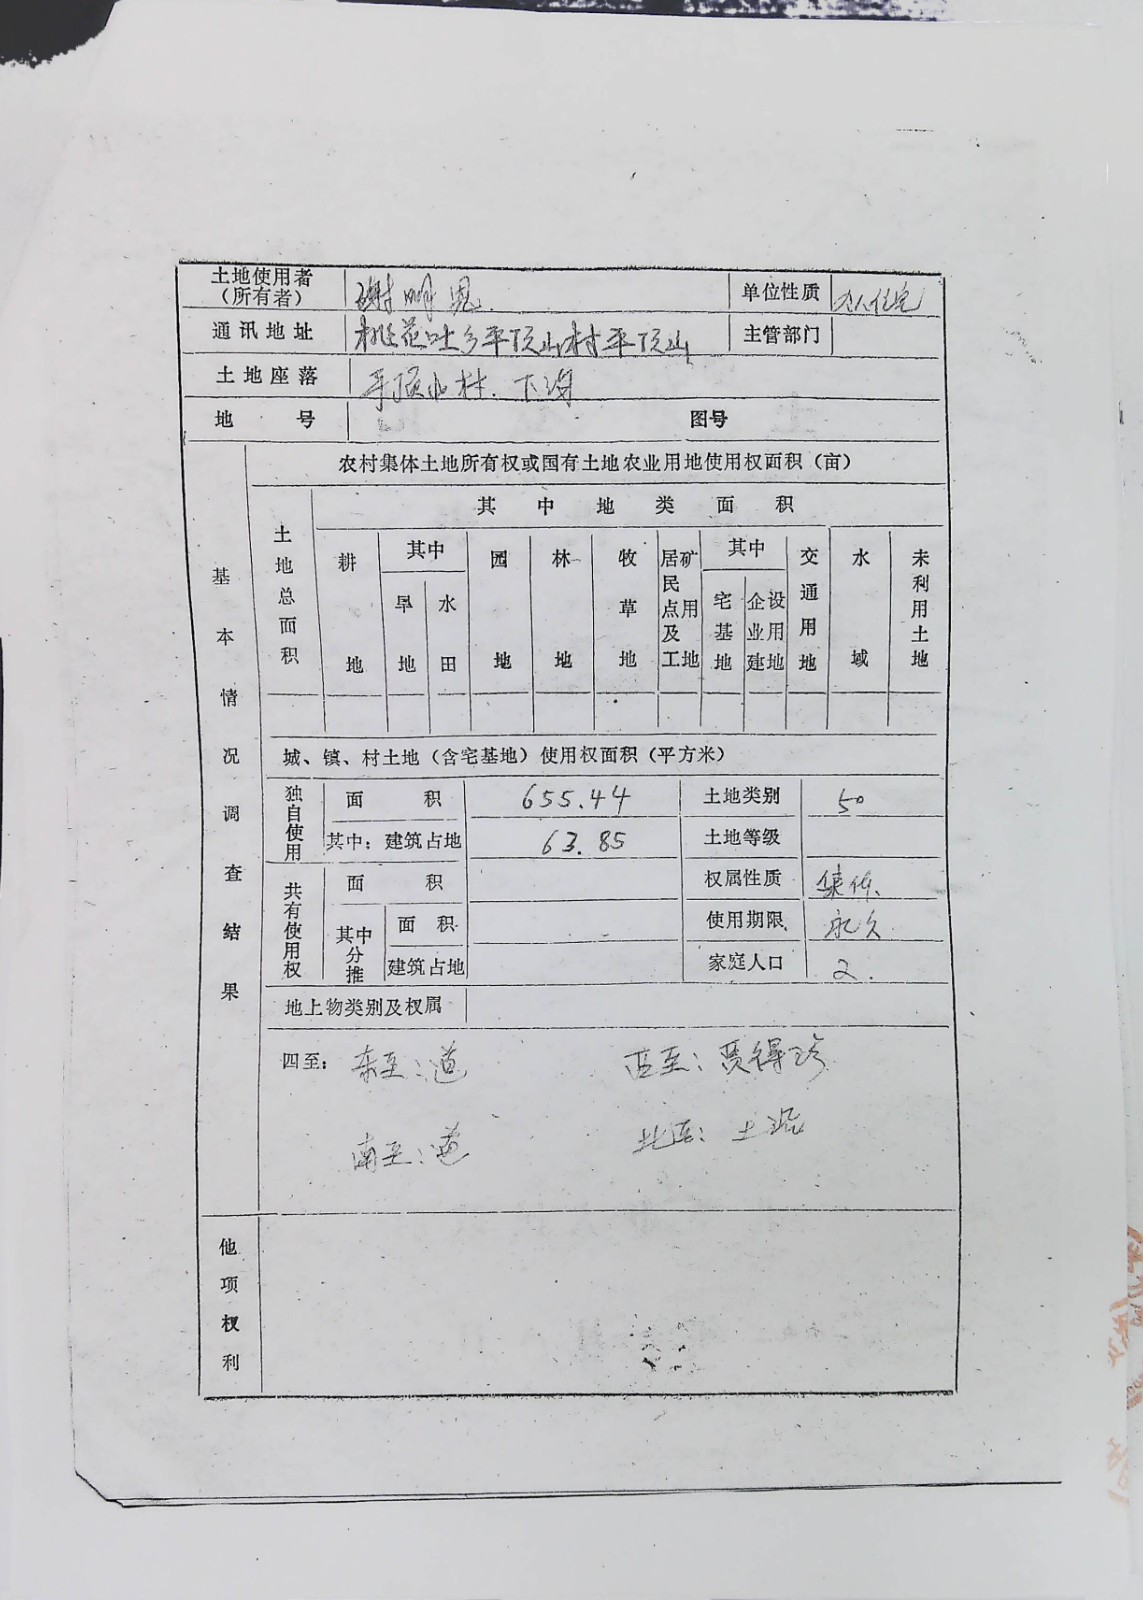 土地使用者（所有者） 谢明恩 单位性质 个人住宅
通讯地址 桃花吐乡平顶山村平顶山 主管部门
土地座落 平顶山村.下沟
地号 图号
基本情况调查结果
农村集体土地所有权或国有土地农业用地使用权面积（亩）
土地总面积 其中地类面积
耕地 其中 旱地 水田 园地 林地 牧草地 居民点及工矿用地 其中 宅基地 企业建设用地 交通用地 水域 未利用土地
城、镇、村土地（含宅基地）使用权面积（平方米）
独自使用 面积 655.44 土地类别 50
其中：建筑占地 63.85 土地等级
共有使用权 面积 权属性质 集体.
其中分摊 面积 使用期限 永久
建筑占地 家庭人口 2.
地上物类别及权属
四至： 东至：道 西至：贾得珍
南至：道 北至：土
他项权利